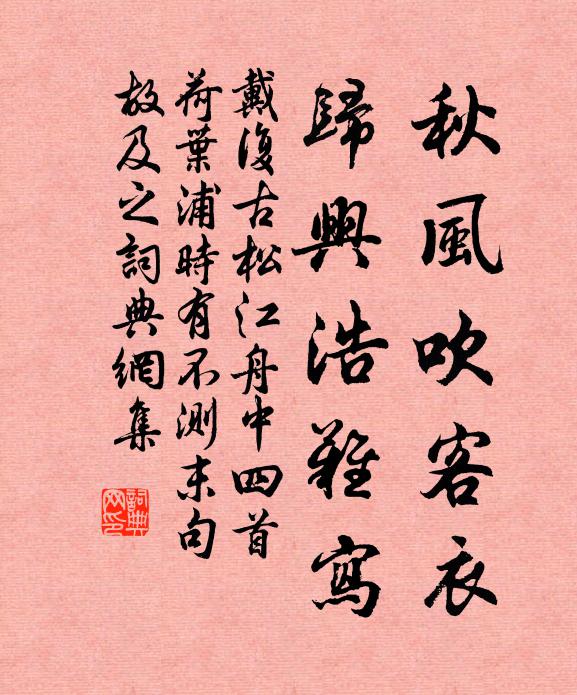 秋風吹客衣
歸興浩難寫
戴復古松江舟中四首
荷葉浦時有不測末句
故及之詞典網集
詞典网印